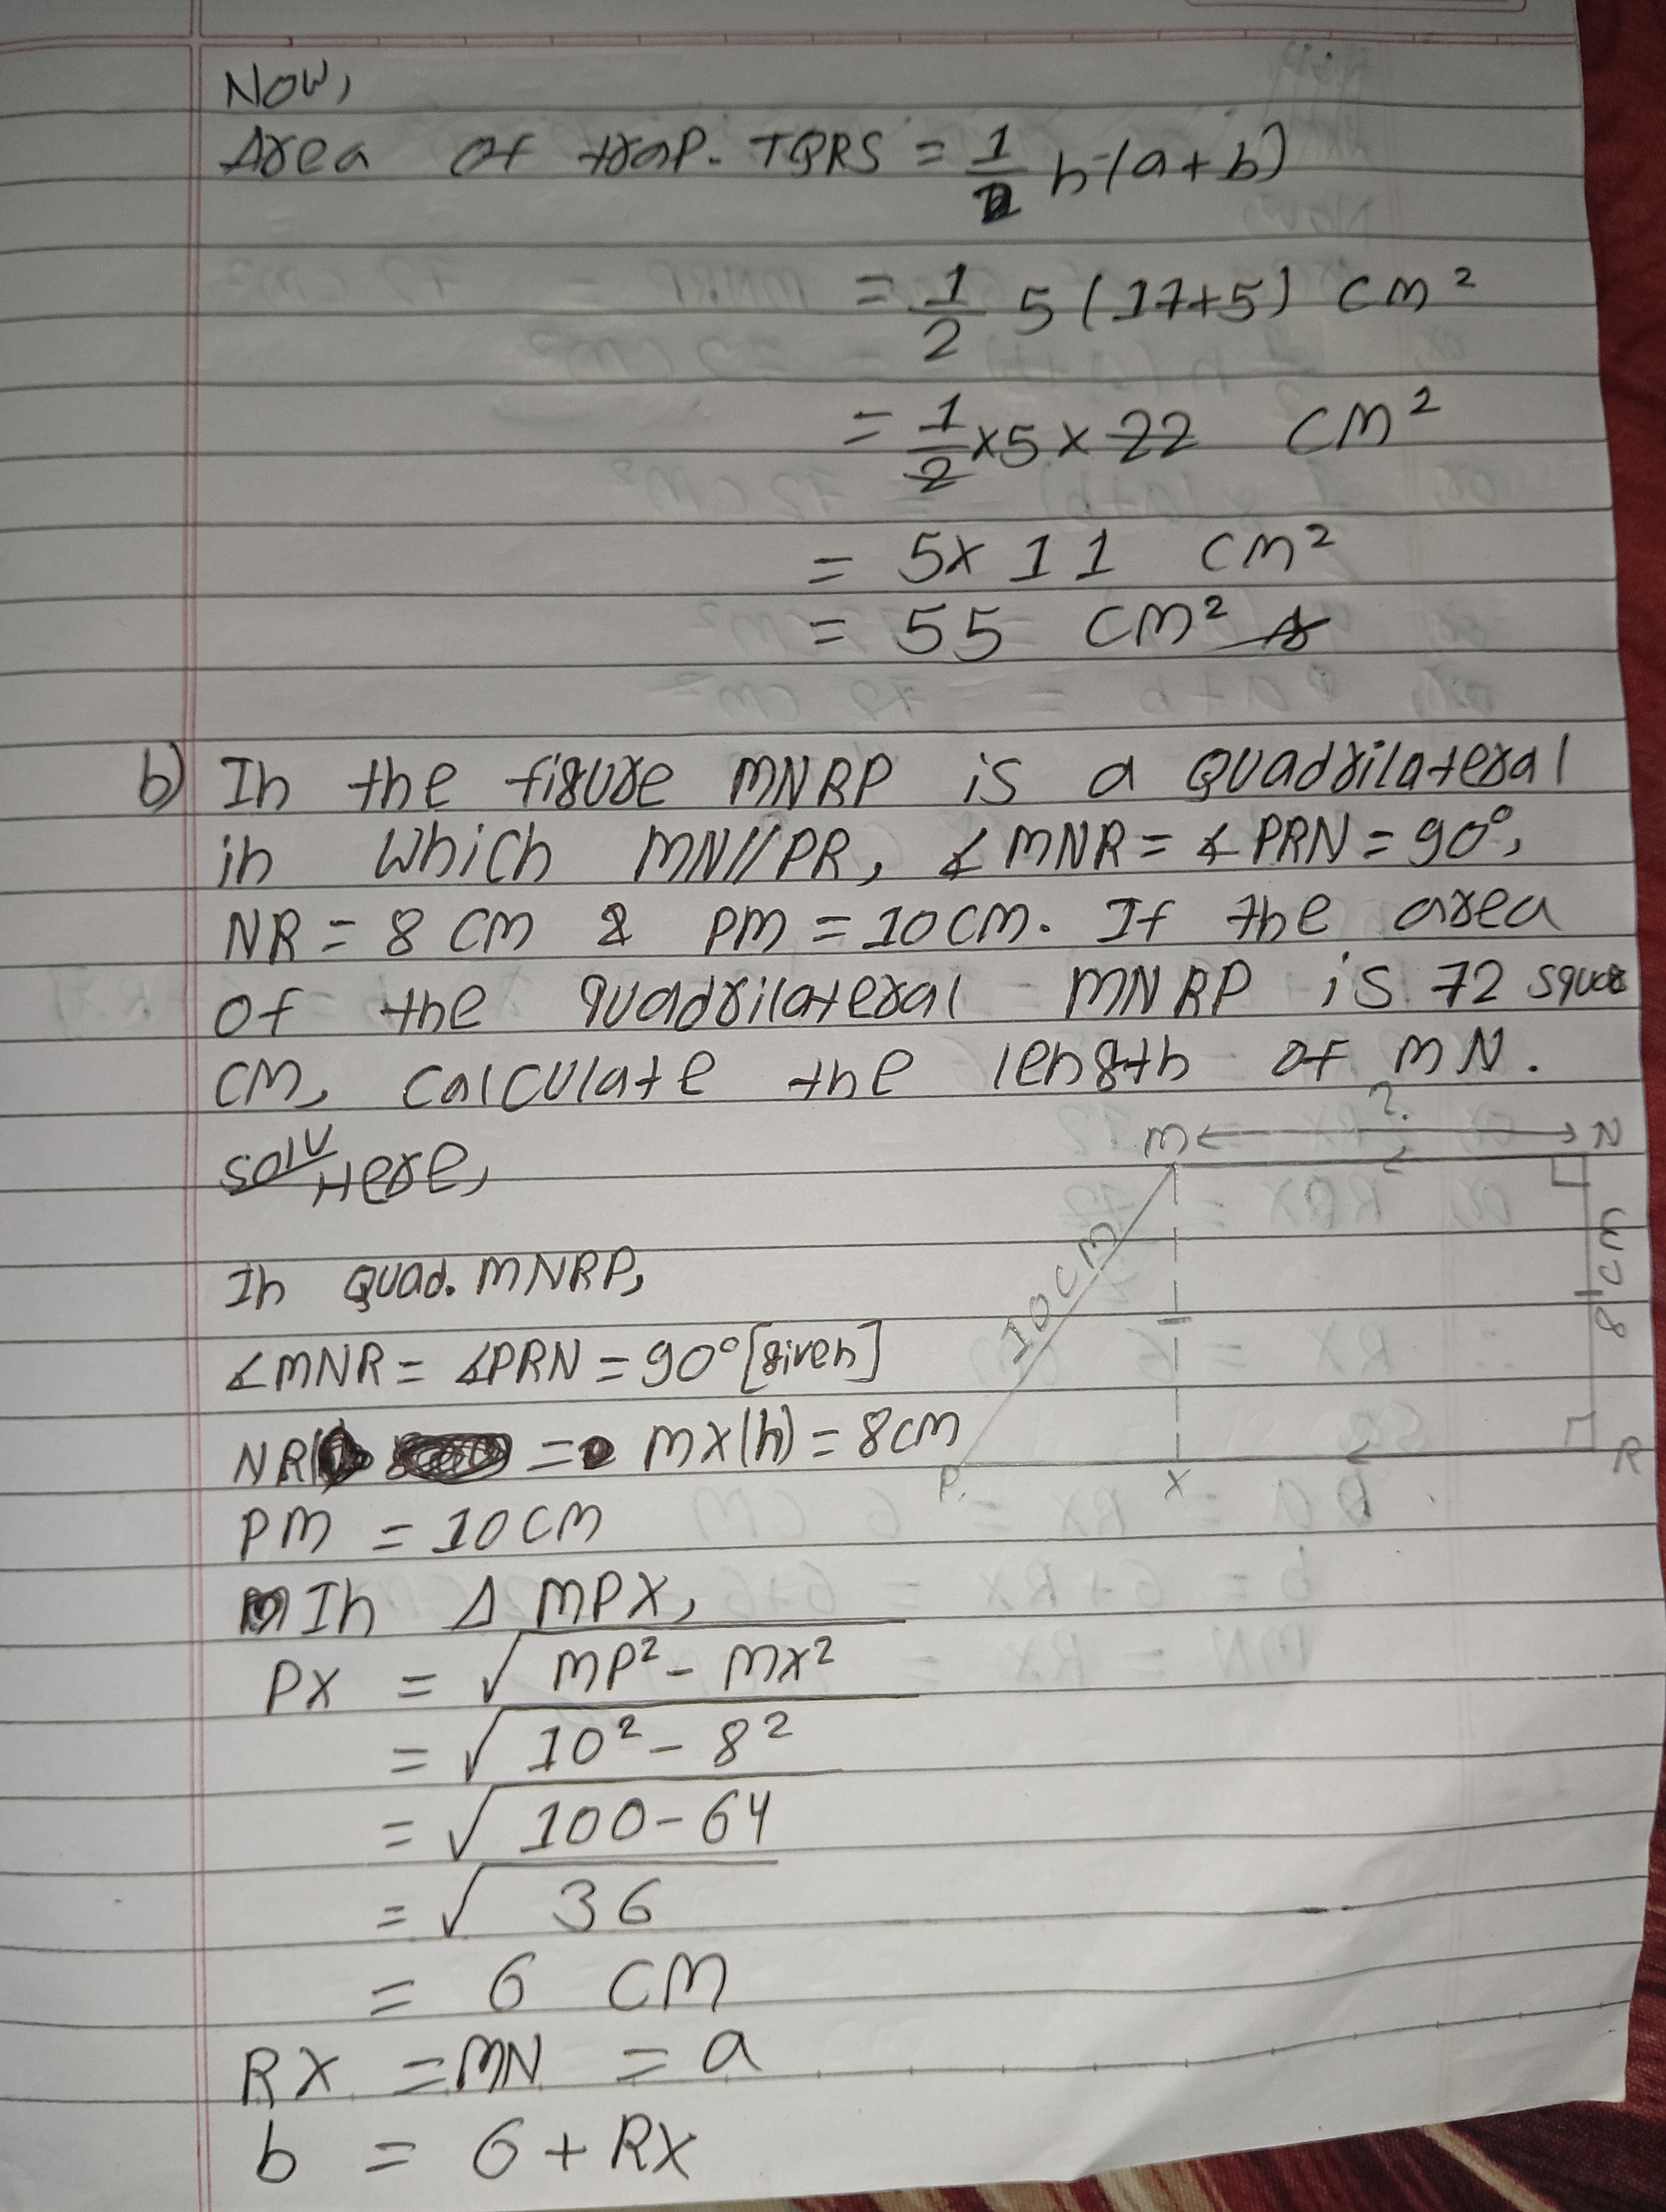 Now,
Area of trap. TQRS = 1/2 h (a+b)
= 1/2 5 (17+5) cm²
= 1/2 × 5 × 22 cm²
= 5 × 11 cm²
= 55 cm²
b) In the figure MNRP is a quadrilateral
in which MN//PR, ∡MNR = ∡PRN = 90°,
NR = 8 cm & PM = 10 cm. If the area
of the quadrilateral MNRP is 72 square
cm, calculate the length of MN.
Solⁿ Here,
M ? N
10 cm
8 cm
P X R
In Quad. MNRP,
∡MNR = ∡PRN = 90° [given]
NR = MX(h) = 8 cm
PM = 10 cm
In Δ MPX,
PX = √MP² - MX²
= √10² - 8²
= √100 - 64
= √36
= 6 cm
RX = MN = a
b = 6 + RX